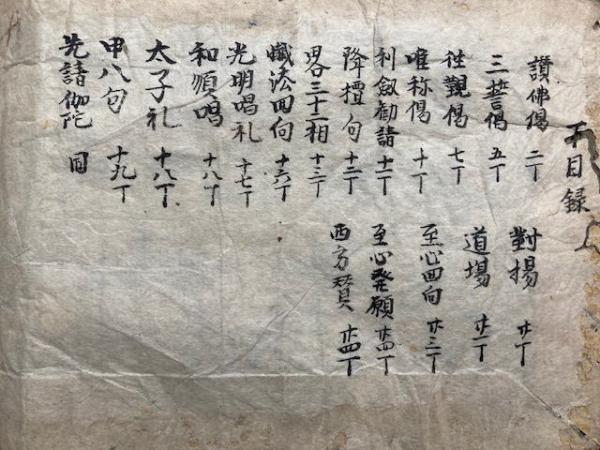 目録
讃佛偈 二丁
三誓偈 五丁
往覲偈 七丁
唯称偈 十丁
利劔勧請 十一丁
降壇句 十二丁
畧三十二相 十三丁
懴法回向 十六丁
光明唱礼 十七丁
和順唱 十八丁
太子礼 十八丁
甲八句 十九丁
先請伽陀 同
對揚 廿丁
道場 廿一丁
至心回向 廿三丁
至心発願 廿四丁
西方賛 廿四丁